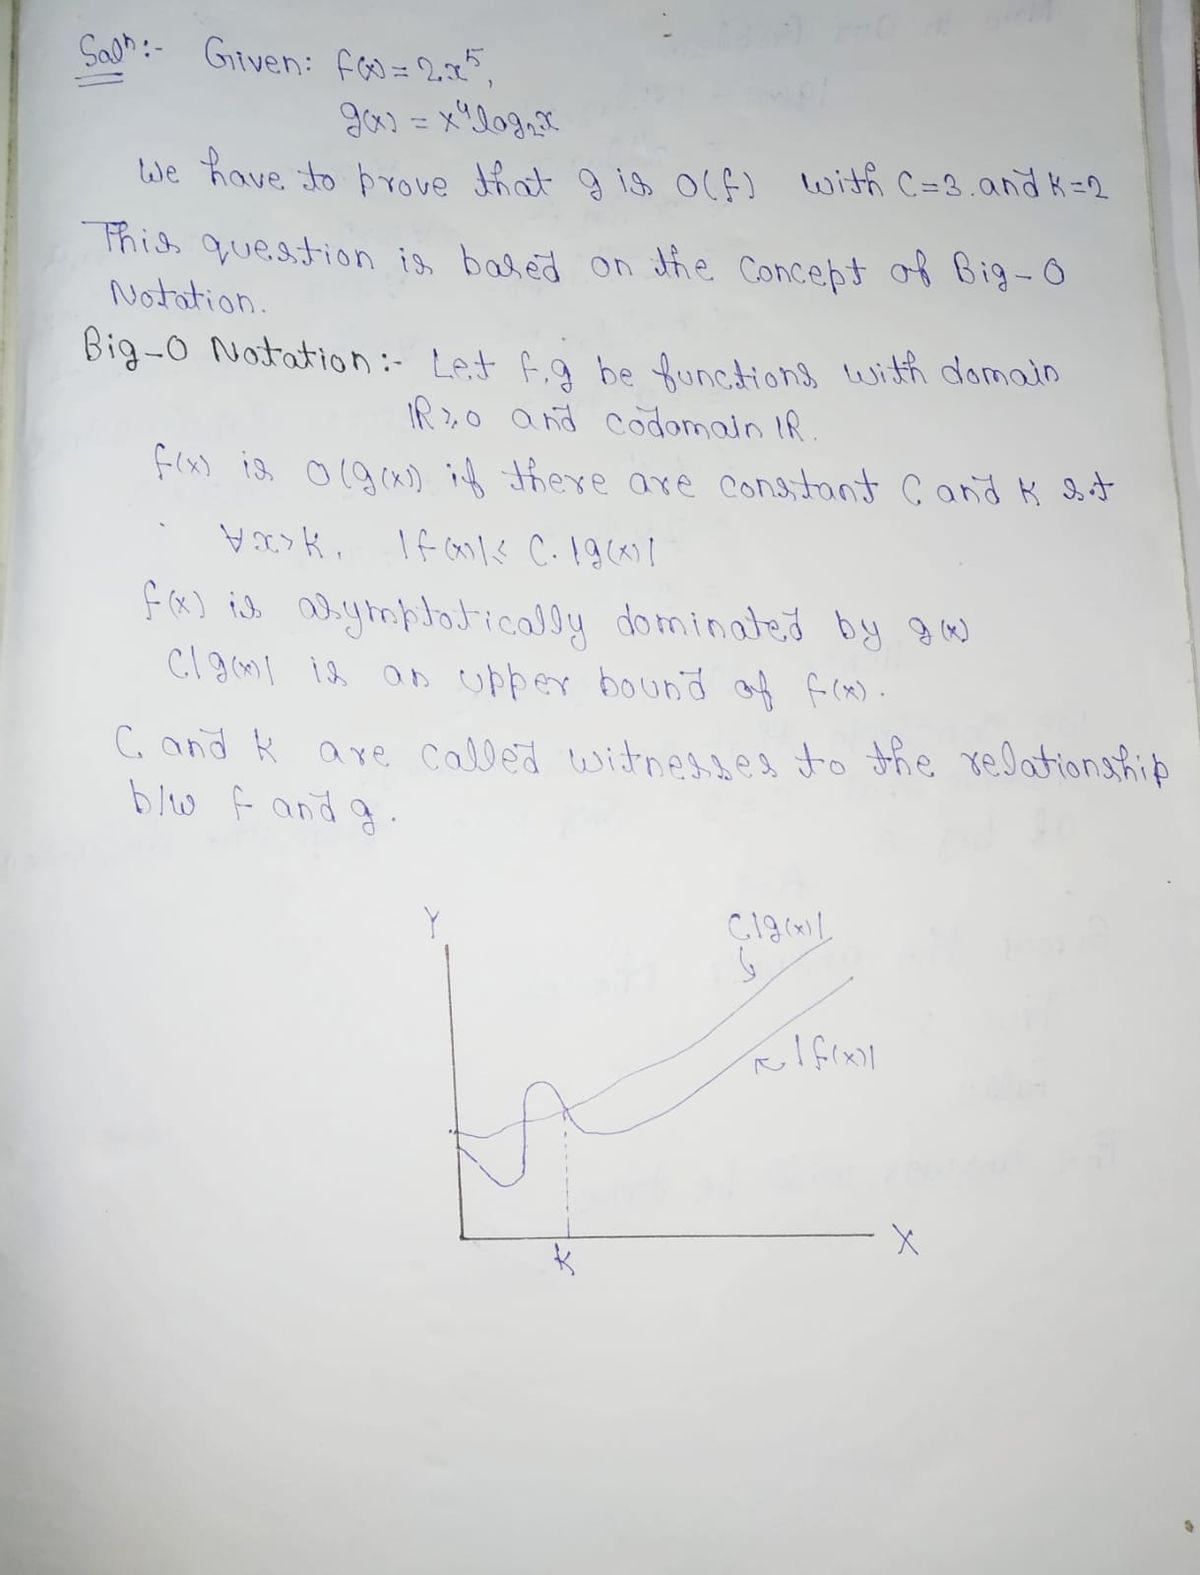 Solⁿ:- Given: f(x) = 2x⁵,
g(x) = x⁴log₂x
We have to prove that g is O(f) with C=3. and K=2
This question is based on the concept of Big-O
Notation.
Big-O Notation:- Let f,g be functions with domain
IR≥0 and codomain IR.
f(x) is O(g(x)) if there are constant C and K s.t
∀x>K, |f(x)|≤ C.|g(x)|
f(x) is asymptotically dominated by g(x)
C|g(x)| is an upper bound of f(x).
C and K are called witnesses to the relationship
b/w f and g.
Y
C.|g(x)|
|f(x)|
K
X